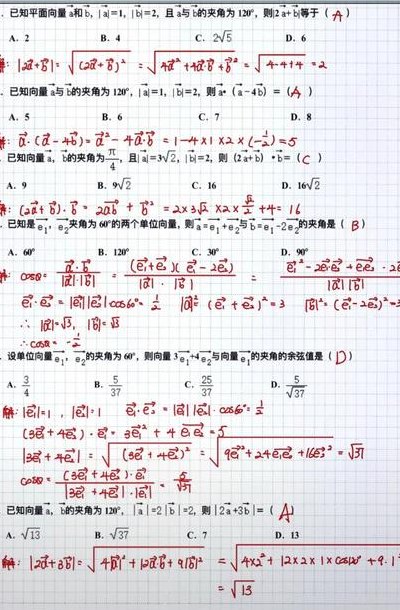 . 已知平面向量a和b, |a|=1, |b|=2, 且a与b的夹角为120°, 则|2a+b|等于 ( A )
A. 2 B. 4 C. 2√5 D. 6
解: |2a+b|=√(2a+b)² = √4a²+4a·b+b² = √4-4+4 = 2
. 已知向量a与b的夹角为120°, |a|=1, |b|=2, 则a•(a-4b) = ( A )
A. 5 B. 6 C. 7 D. 8
a·(a-4b) = a²-4a·b = 1-4×1×2×(-1/2)=5
. 已知向量a, b的夹角为π/4, 且|a|=3√2, |b|=2, 则 (2a+b) •b= ( C )
A. 9 B. 9√2 C. 16 D. 16√2
: (2a+b)·b = 2ab+b² = 2×3√2×2×√2/2+4= 16
. 已知是e₁, e₂夹角为60°的两个单位向量, 则a=e₁+e₂与b=e₁-2e₂的夹角是 ( B )
A. 60° B. 120° C. 30° D. 90°
cosθ= a·b/|a|·|b| = (e₁+e₂)(e₁-2e₂)/|a|·|b| = e₁²-2e₁e₂+e₁e₂-2
e₁·e₂ = |e₁||e₂|cos60°= 1/2 |a|²= (e₁+e₂)²=3 |b|²=(e₁-2e₂)²=3
∴ |a|=√3, |b|=√3
∴cosθ= -1/2
. 设单位向量e₁, e₂的夹角为60°, 则向量3e₁+4e₂与向量e₁的夹角的余弦值是 ( D )
A. 3/4 B. 5/37 C. 25/37 D. 5/√37
解: |e₁|=1, |e₂|=1 e₁·e₂ = |e₁||e₂|·cos60°= 1/2
(3e₁+4e₂)·e₁= 3e₁²+4e₁e₂=5
|3e₁+4e₂|= √(3e₁+4e₂)² = √9e₁²+24e₁e₂+16e₂² = √37
cosθ= (3e₁+4e₂)·e₁/|3e₁+4e₂|·|e₁| = 5/√37
已知向量a, b的夹角为120°, |a|=2|b|=2, 则|2a+3b|= ( A )
A. √13 B. √37 C. 7 D. 13
: |2a+3b|=√4|a|²+12a·b+9|b|² = √4×2²+12×2×1×cos120°+9·1
= √13